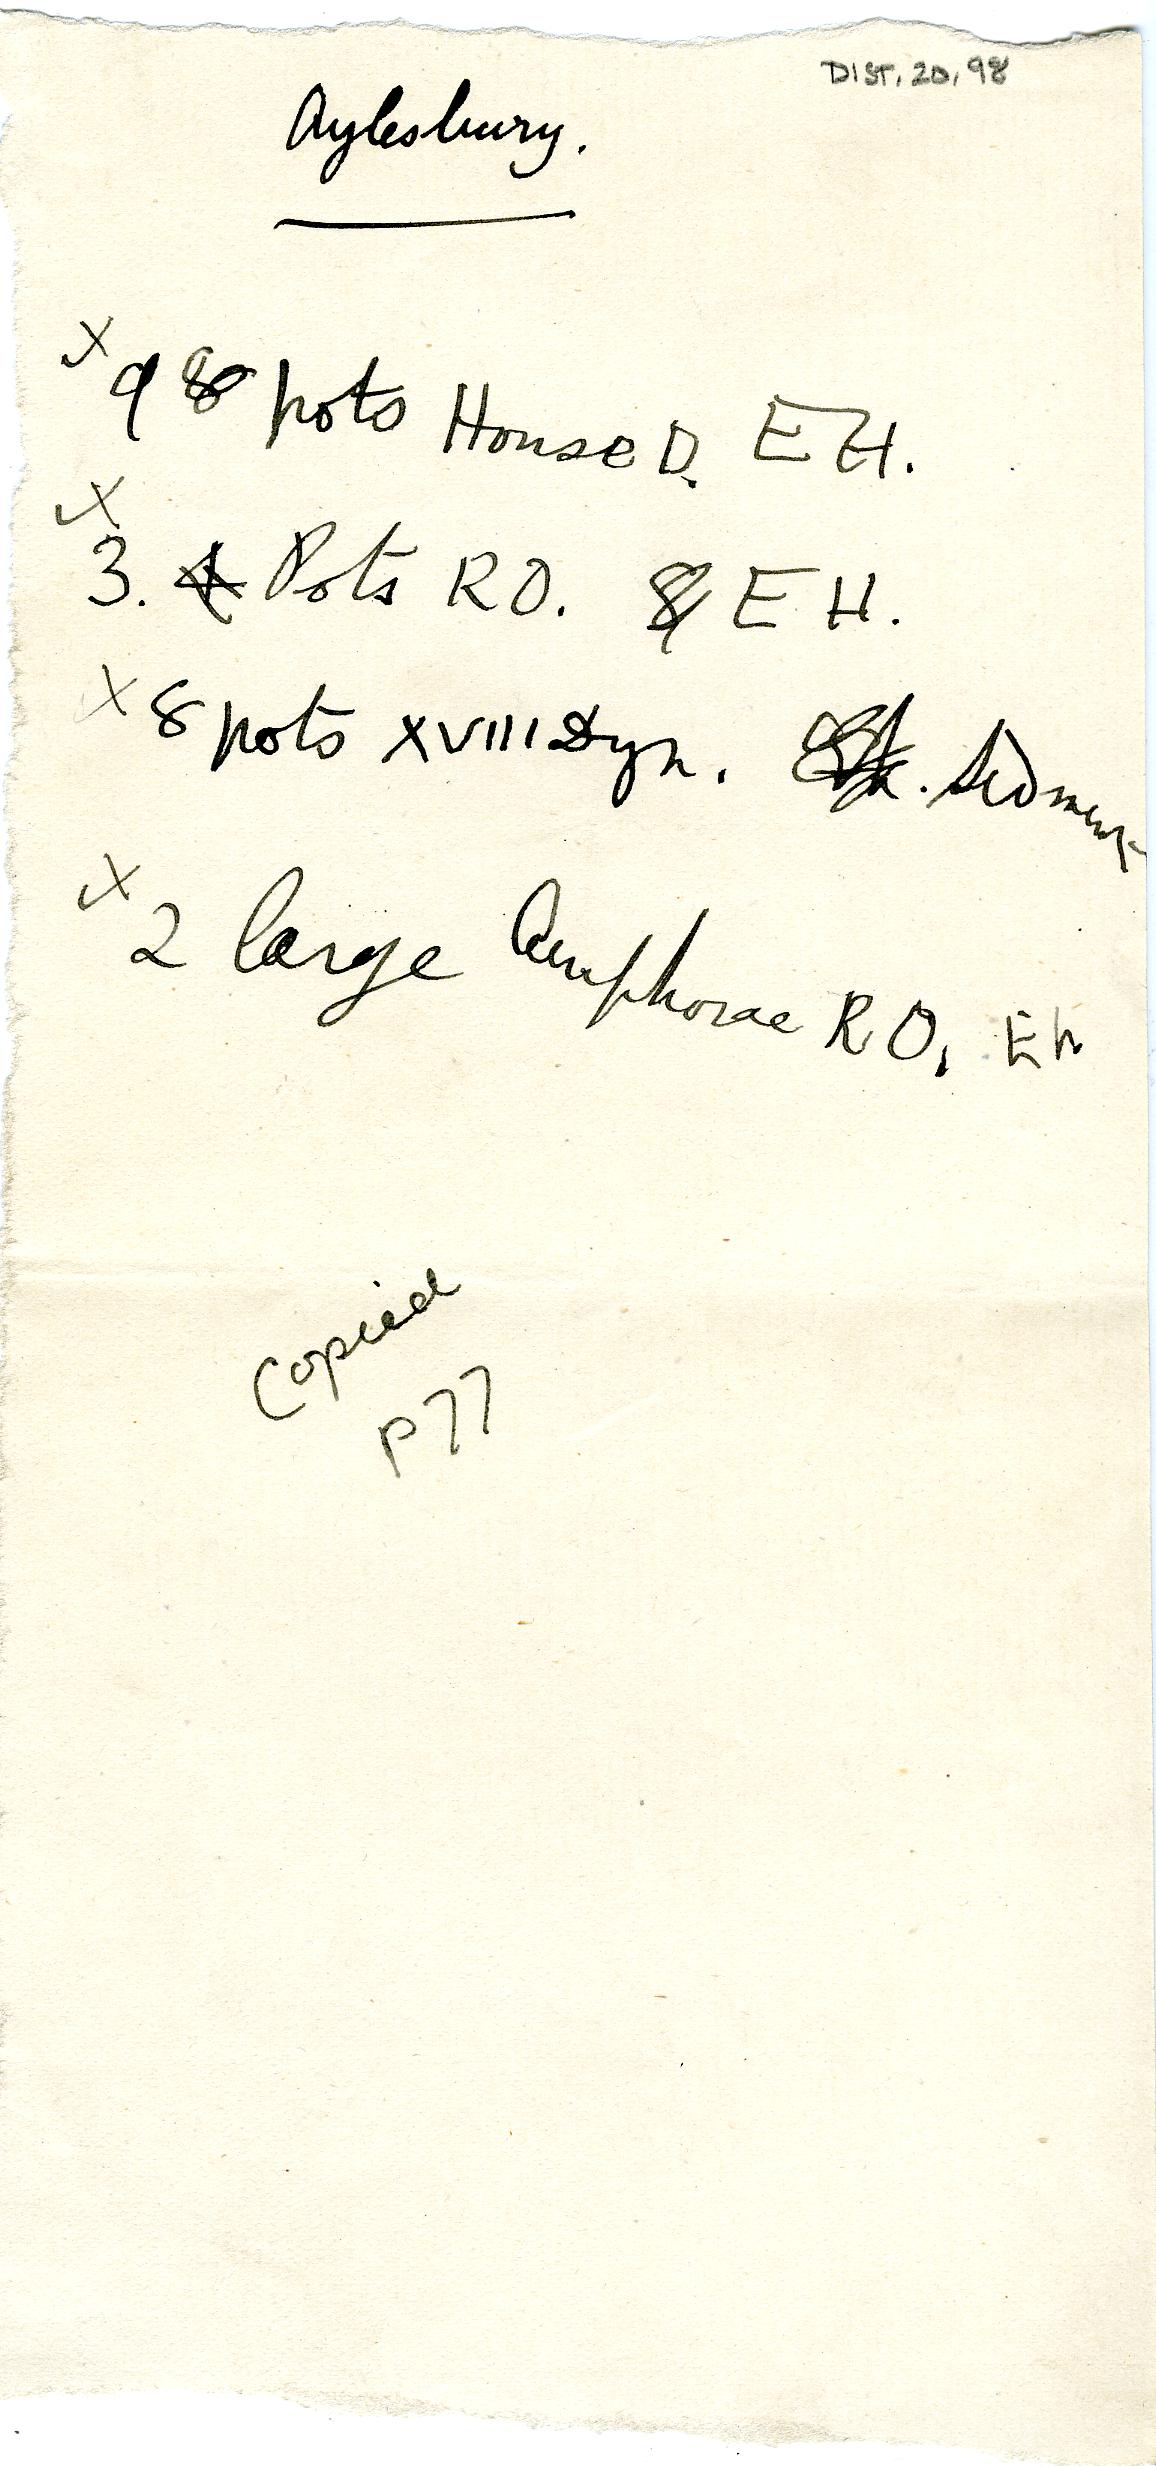 DIST. 20, 98
Aylesbury.
x 9 8 pots House D. EH.
x 3. 4 Pots RO. & EH.
x 8 pots XVIII Dyn. Sedment
x 2 large Amphorae RO. EH
Copied
P77